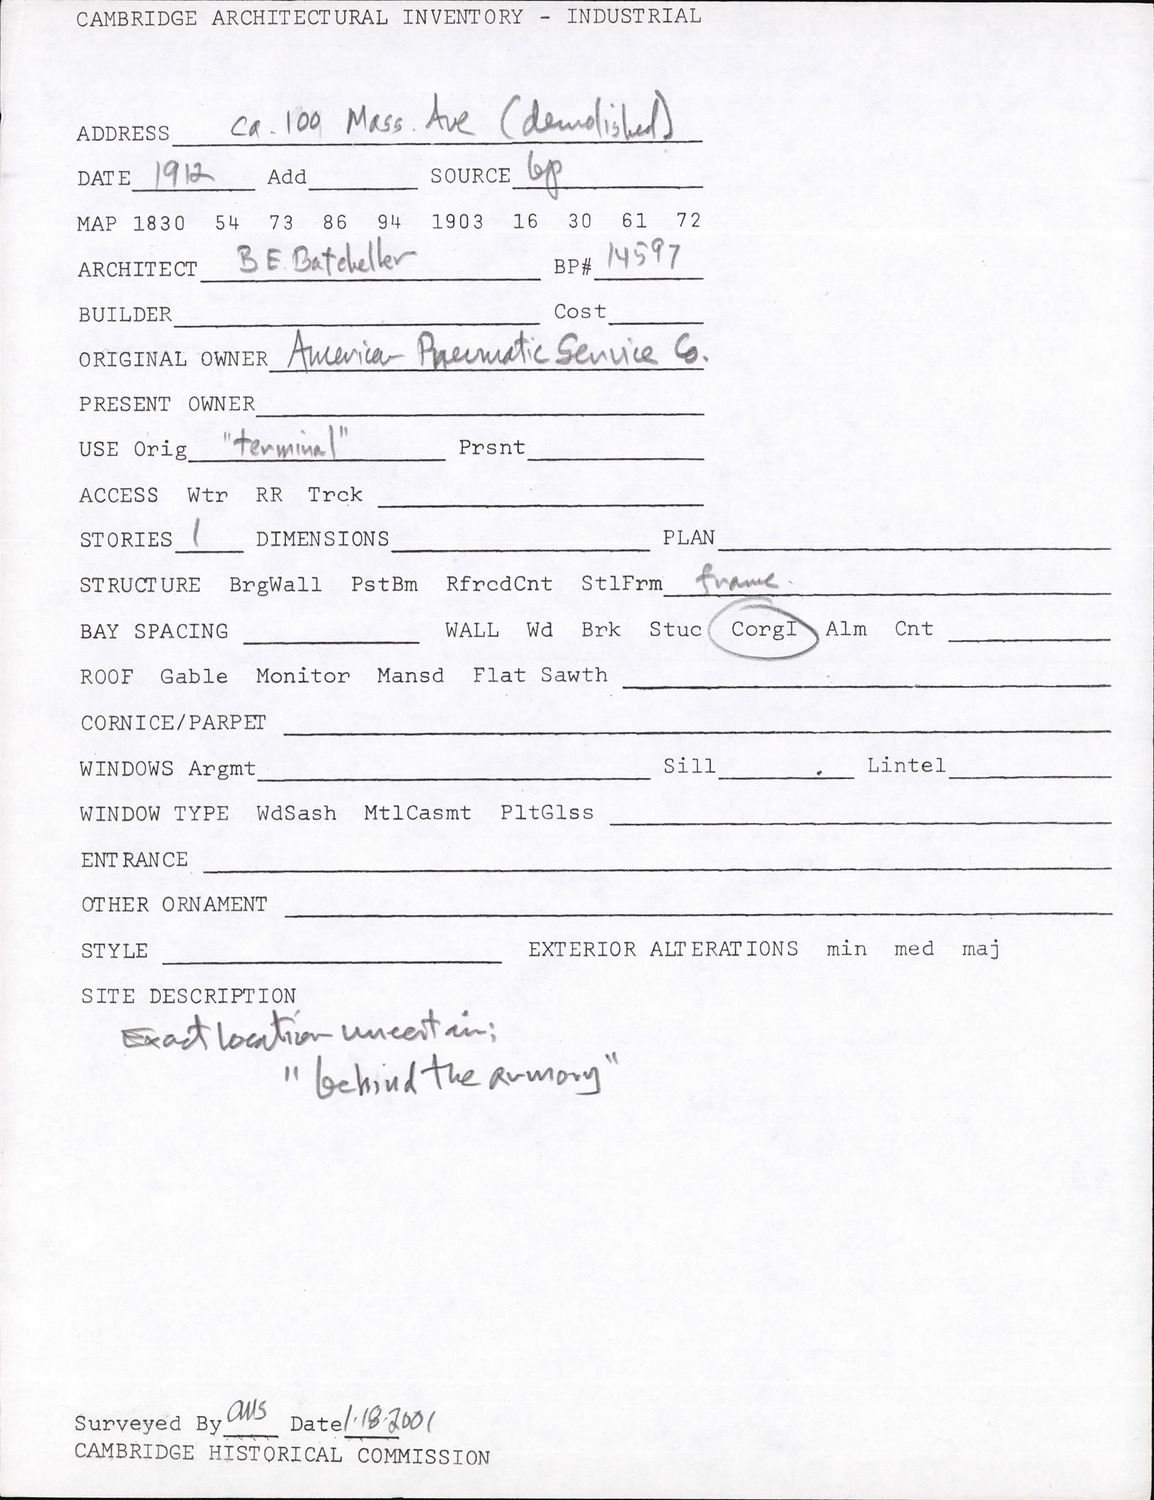 CAMBRIDGE ARCHITECTURAL INVENTORY - INDUSTRIAL
ADDRESS ca. 100 Mass. Ave (demolished)
DATE 1912 Add SOURCE bp
MAP 1830 54 73 86 94 1903 16 30 61 72
ARCHITECT B E. Batcheller BP# 14597
BUILDER Cost
ORIGINAL OWNER American Pneumatic Service Co.
PRESENT OWNER
USE Orig "terminal" Prsnt
ACCESS Wtr RR Trck
STORIES 1 DIMENSIONS PLAN
STRUCTURE BrgWall PstBm RfrcdCnt StlFrm frame
BAY SPACING WALL Wd Brk Stuc CorgI Alm Cnt
ROOF Gable Monitor Mansd Flat Sawth
CORNICE/PARPET
WINDOWS Argmt Sill Lintel
WINDOW TYPE WdSash MtlCasmt PltGlss
ENTRANCE
OTHER ORNAMENT
STYLE EXTERIOR ALTERATIONS min med maj
SITE DESCRIPTION
Exact location uncertain;
"behind the armory"
Surveyed By Date 1.18.2001
CAMBRIDGE HISTORICAL COMMISSION